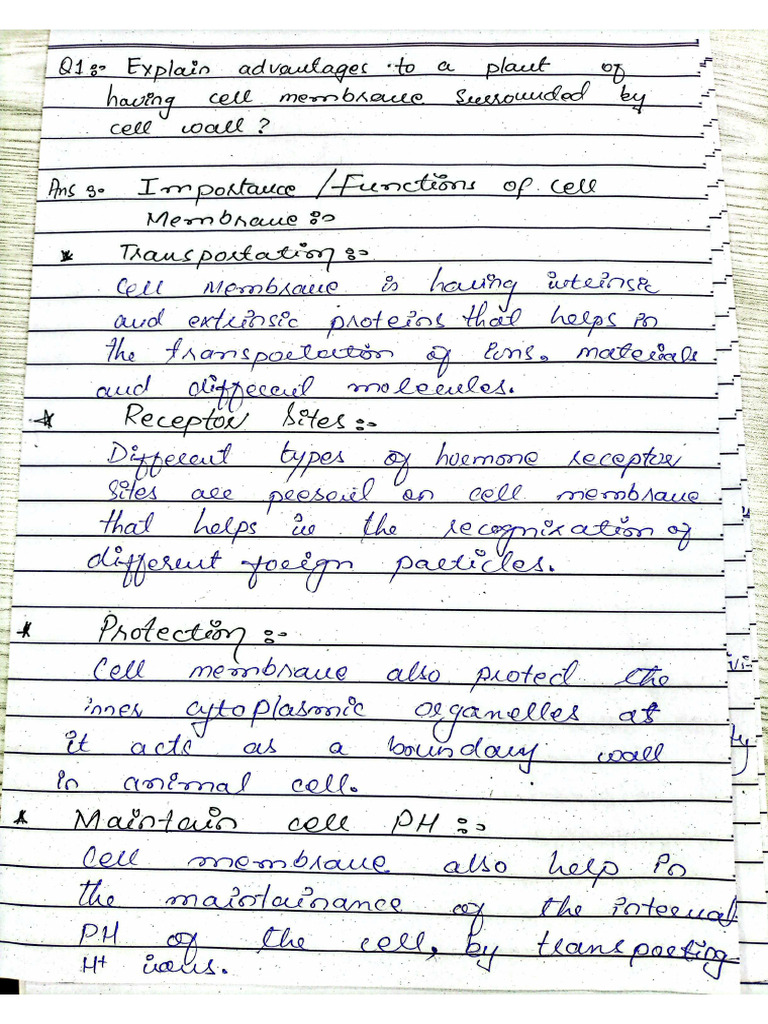 Q1:- Explain advantages to a plant of
having cell membrane surrounded by
cell wall?
Ans :- Importance / Functions of cell
Membrane :-
* Transportation :-
Cell Membrane is having intrinsic
and extrinsic proteins that helps in
the transportation of ions, materials
and different molecules.
* Receptor Sites :-
Different types of hormone receptor
sites are present on cell membrane
that helps in the recognization of
different foreign particles.
* Protection :-
Cell membrane also protect the
inner cytoplasmic organelles as
it acts as a boundary wall
in animal cell.
* Maintain cell PH :-
Cell membrane also help in
the maintainance of the internal
PH of the cell, by transporting
H+ ions.